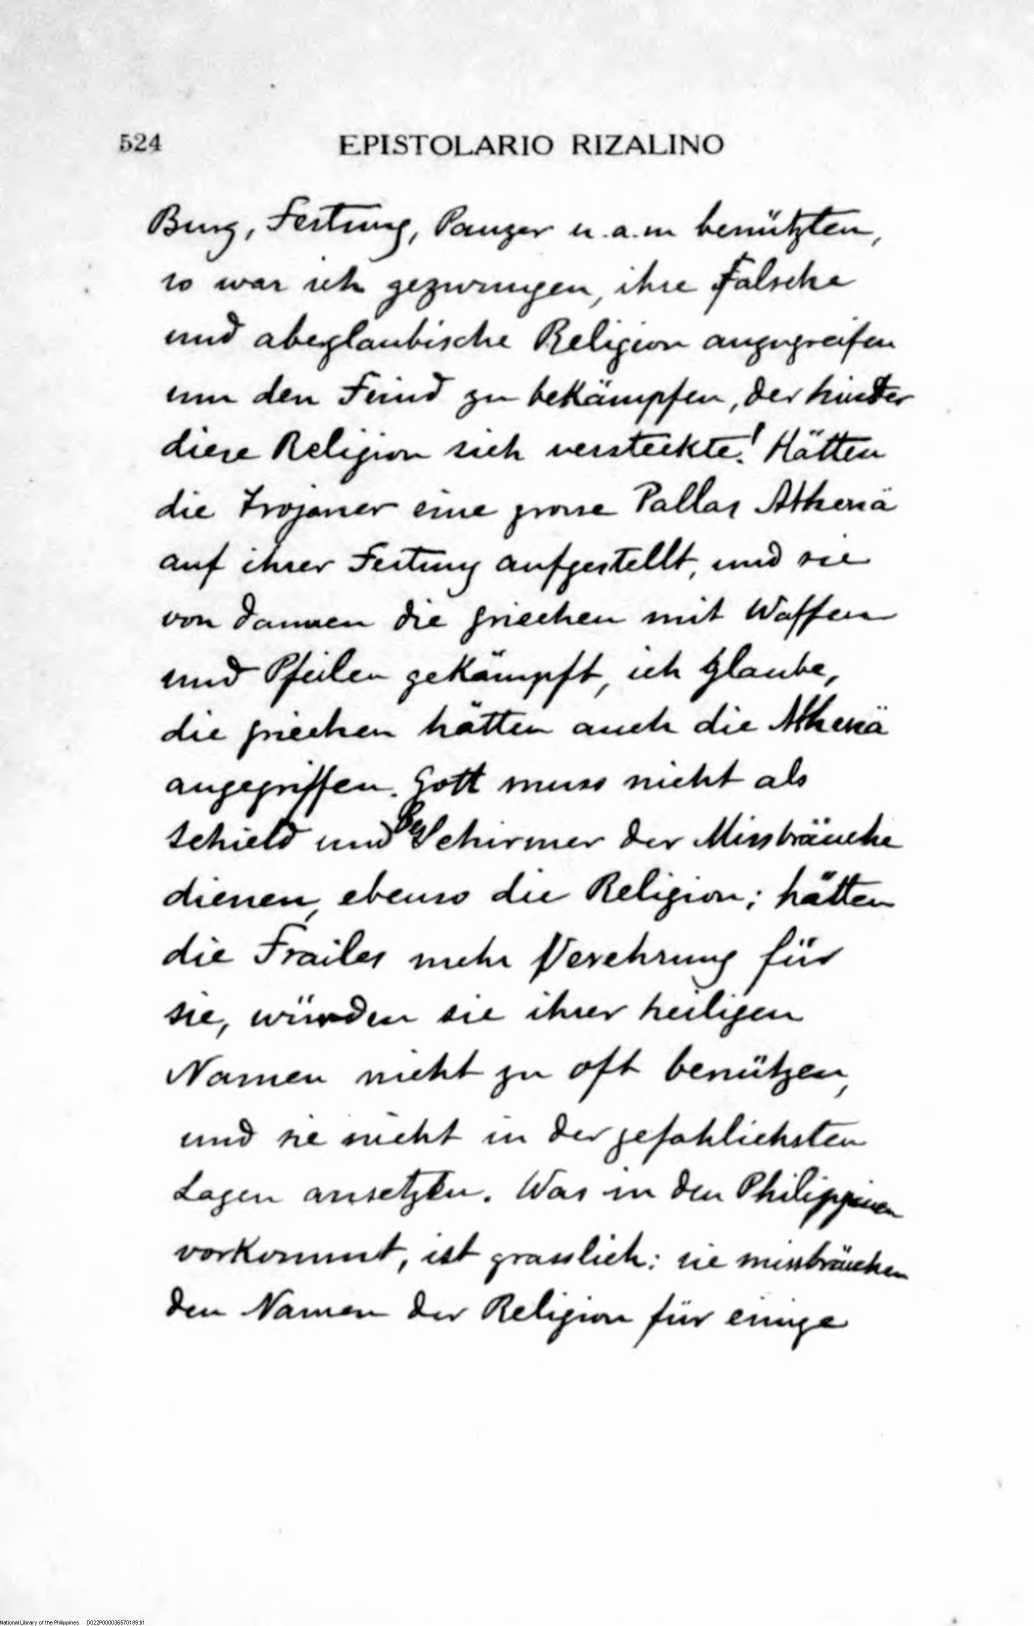 524 EPISTOLARIO RIZALINO
Burg, Festung, Panzer u.a.m benützten,
so war ich gezwungen, ihre Falsche
und abeglaubische Religion anzugreifen
um den Feind zu bekämpfen, der hinter
diese Religion sich versteckte! Hätten
die Trojaner eine grosse Pallas Athenä
auf ihrer Festung aufgestellt, und sie
von dannen die griechen mit Waffen
und Pfeilen gekämpft, ich glaube,
die griechen hätten auch die Athenä
angegriffen. Gott muss nicht als
Schield und Beschirmer der Missbräuche
dienen, ebenso die Religion; hätten
die Frailes mehr Verehrung für
sie, würden sie ihrer heiligen
Namen nicht zu oft benützen,
und sie nicht in der gefahlichsten
Lagen ansetzten. Was in den Philippinen
vorkommt, ist grasslich: sie missbräuchen
den Namen der Religion für einige
National Library of the Philippines